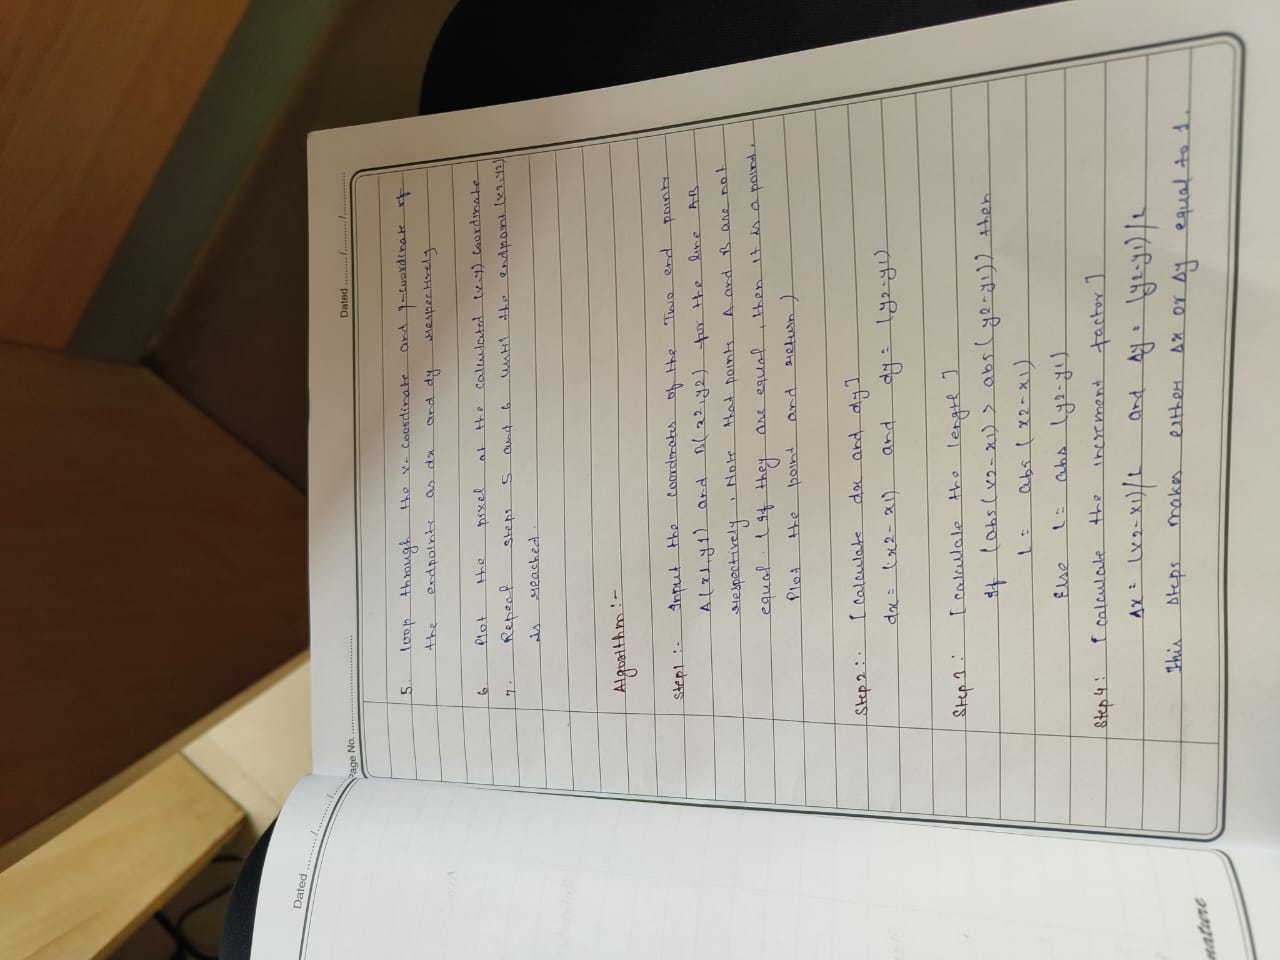 Dated ........./........./.........
Page No. ........................
5. loop through the x-coordinate and y-coordinate of
the endpoints as dx and dy respectively
6. Plot the pixel at the calculated (x-y) coordinate
7. Repeat steps 5 and 6 until the endpoint (x2,y2)
is reached.
Algorithm:-
Step1:- Input the coordinates of the Two end points
A(x1,y1) and B(x2,y2) for the line AB
respectively. Note that points A and B are not
equal. (If they are equal, then it is a point.
Plot the point and return)
Step2:- [calculate dx and dy]
dx = (x2-x1) and dy = (y2-y1)
Step3: [calculate the length]
If (abs(x2-x1) > abs(y2-y1)) then
L = abs(x2-x1)
Else L = abs(y2-y1)
Step4: [calculate the increment factor]
Δx = (x2-x1)/L and Δy = (y2-y1)/L
This steps makes either Δx or Δy equal to 1.
Dated ........./........./.........
nature